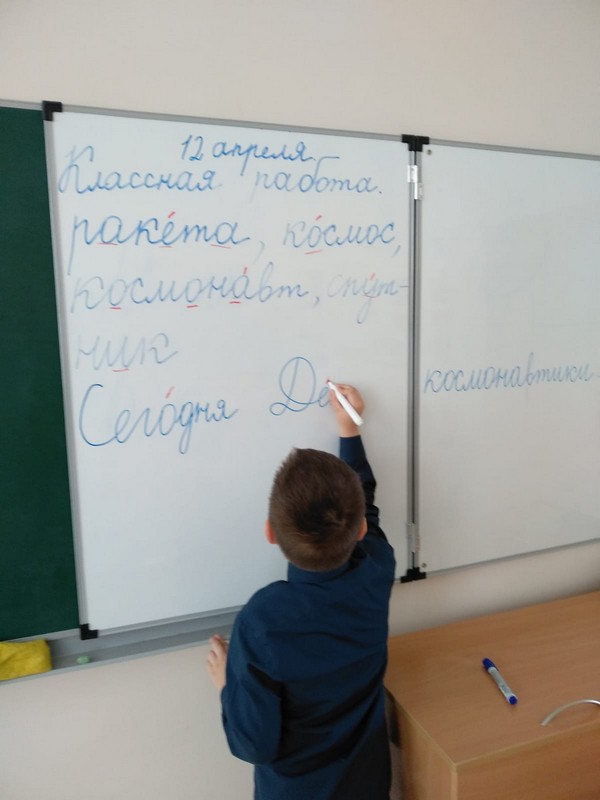 12 апреля
Классная работа.
раке́та, ко́смос,
космона́вт, спу́т-
ник
Сего́дня Де
космонавтики.